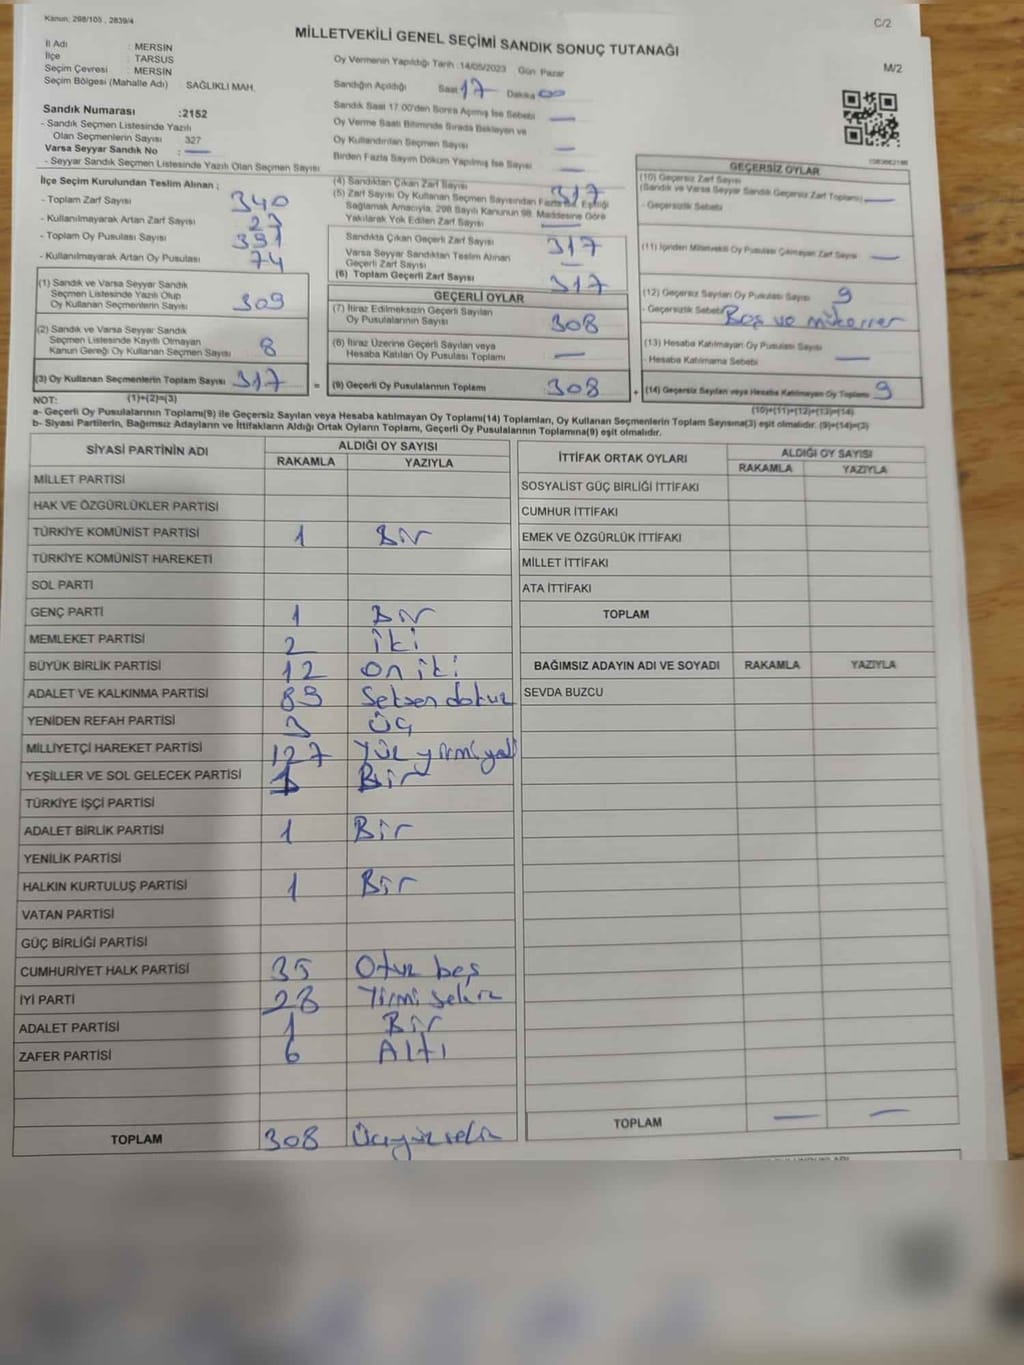 Kanun: 298/105 , 2839/4
C/2
MİLLETVEKİLİ GENEL SEÇİMİ SANDIK SONUÇ TUTANAĞI
M/2
İl Adı : MERSİN
İlçe : TARSUS
Seçim Çevresi : MERSİN
Seçim Bölgesi (Mahalle Adı) SAĞLIKLI MAH.
Sandık Numarası :2152
- Sandık Seçmen Listesinde Yazılı
Olan Seçmenlerin Sayısı 327
Varsa Seyyar Sandık No : —
- Seyyar Sandık Seçmen Listesinde Yazılı Olan Seçmen Sayısı
Oy Vermenin Yapıldığı Tarih :14/05/2023 Gün Pazar
Sandığın Açıldığı Saat 17 Dakika 00
Sandık Saat 17.00'den Sonra Açılmış İse Sebebi —
Oy Verme Saati Bitiminde Sırada Bekleyen ve
Oy Kullandırılan Seçmen Sayısı —
Birden Fazla Sayım Döküm Yapılmış İse Sayısı —
İlçe Seçim Kurulundan Teslim Alınan ;
- Toplam Zarf Sayısı 340
- Kullanılmayarak Artan Zarf Sayısı 23
- Toplam Oy Pusulası Sayısı 391
- Kullanılmayarak Artan Oy Pusulası 74
(1) Sandık ve Varsa Seyyar Sandık
Seçmen Listesinde Yazılı Olup
Oy Kullanan Seçmenlerin Sayısı 309
(2) Sandık ve Varsa Seyyar Sandık
Seçmen Listesinde Kayıtlı Olmayan
Kanun Gereği Oy Kullanan Seçmen Sayısı 8
(3) Oy Kullanan Seçmenlerin Toplam Sayısı 317 =
(1)+(2)=(3)
(4) Sandıktan Çıkan Zarf Sayısı 317
(5) Zarf Sayısı Oy Kullanan Seçmen Sayısından Fazla ise, Eşitliği
Sağlamak Amacıyla, 298 Sayılı Kanunun 98. Maddesine Göre
Yakılarak Yok Edilen Zarf Sayısı —
Sandıkta Çıkan Geçerli Zarf Sayısı 317
Varsa Seyyar Sandıktan Teslim Alınan
Geçerli Zarf Sayısı —
(6) Toplam Geçerli Zarf Sayısı 317
GEÇERLİ OYLAR
(7) İtiraz Edilmeksizin Geçerli Sayılan
Oy Pusulalarının Sayısı 308
(8) İtiraz Üzerine Geçerli Sayılan veya
Hesaba Katılan Oy Pusulası Toplamı —
(9) Geçerli Oy Pusulalarının Toplamı 308 +
GEÇERSİZ OYLAR
(10) Geçersiz Zarf Sayısı
(Sandık ve Varsa Seyyar Sandık Geçersiz Zarf Toplamı) —
- Geçersizlik Sebebi
(11) İçinden Milletvekili Oy Pusulası Çıkmayan Zarf Sayısı —
(12) Geçersiz Sayılan Oy Pusulası Sayısı 9
- Geçersizlik Sebebi Boş ve mükerrer
(13) Hesaba Katılmayan Oy Pusulası Sayısı —
- Hesaba Katılmama Sebebi
(14) Geçersiz Sayılan veya Hesaba Katılmayan Oy Toplamı 9
(10)+(11)+(12)+(13)=(14)
NOT:
a- Geçerli Oy Pusulalarının Toplamı(9) ile Geçersiz Sayılan veya Hesaba katılmayan Oy Toplamı(14) Toplamları, Oy Kullanan Seçmenlerin Toplam Sayısına(3) eşit olmalıdır. (9)+(14)=(3)
b- Siyasi Partilerin, Bağımsız Adayların ve İttifakların Aldığı Ortak Oyların Toplamı, Geçerli Oy Pusulalarının Toplamına(9) eşit olmalıdır.
SİYASİ PARTİNİN ADI ALDIĞI OY SAYISI
RAKAMLA YAZIYLA
MİLLET PARTİSİ
HAK VE ÖZGÜRLÜKLER PARTİSİ
TÜRKİYE KOMÜNİST PARTİSİ 1 Bir
TÜRKİYE KOMÜNİST HAREKETİ
SOL PARTİ
GENÇ PARTİ 1 Bir
MEMLEKET PARTİSİ 2 iki
BÜYÜK BİRLİK PARTİSİ 12 on iki
ADALET VE KALKINMA PARTİSİ 89 Seksen dokuz
YENİDEN REFAH PARTİSİ 3 üç
MİLLİYETÇİ HAREKET PARTİSİ 127 Yüz yirmi yedi
YEŞİLLER VE SOL GELECEK PARTİSİ 1 Bir
TÜRKİYE İŞÇİ PARTİSİ
ADALET BİRLİK PARTİSİ 1 Bir
YENİLİK PARTİSİ
HALKIN KURTULUŞ PARTİSİ 1 Bir
VATAN PARTİSİ
GÜÇ BİRLİĞİ PARTİSİ
CUMHURİYET HALK PARTİSİ 35 Otuz beş
İYİ PARTİ 28 Yirmi sekiz
ADALET PARTİSİ 1 Bir
ZAFER PARTİSİ 6 Altı
TOPLAM 308 Üçyüz sekiz
İTTİFAK ORTAK OYLARI ALDIĞI OY SAYISI
RAKAMLA YAZIYLA
SOSYALİST GÜÇ BİRLİĞİ İTTİFAKI
CUMHUR İTTİFAKI
EMEK VE ÖZGÜRLÜK İTTİFAKI
MİLLET İTTİFAKI
ATA İTTİFAKI
TOPLAM
BAĞIMSIZ ADAYIN ADI VE SOYADI RAKAMLA YAZIYLA
SEVDA BUZCU
TOPLAM — —